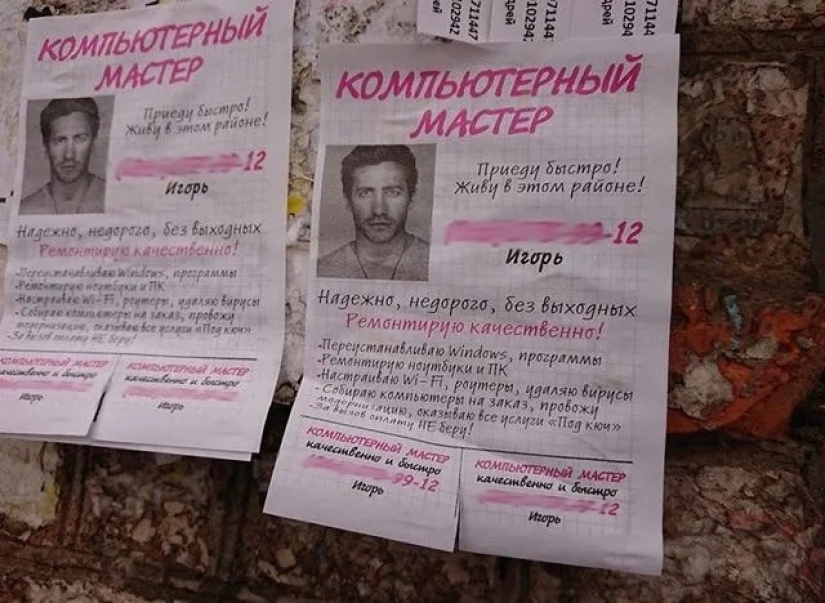 711447
02942
дрей
КОМПЬЮТЕРНЫЙ
МАСТЕР
Приеду быстро!
Живу в этом районе!
-12
Игорь
Надежно, недорого, без выходных
Ремонтирую качественно!
-Переустанавливаю Windows, программы
-Ремонтирую ноутбуки и ПК
-Настраиваю Wi-Fi, роутеры, удаляю вирусы
- Собираю компьютеры на заказ, провожу
модернизацию, оказываю все услуги «Под кюч»
-За вызов оплату НЕ беру!
КОМПЬЮТЕРНЫЙ МАСТЕР
качественно и быстро
Игорь
КОМПЬЮТЕРНЫЙ МАСТЕР
качественно и быстро
Игорь
КОМПЬЮТЕРНЫЙ
МАСТЕР
Приеду быстро!
Живу в этом районе!
-12
Игорь
Надежно, недорого, без выходных
Ремонтирую качественно!
-Переустанавливаю Windows, программы
-Ремонтирую ноутбуки и ПК
-Настраиваю Wi-Fi, роутеры, удаляю вирусы
- Собираю компьютеры на заказ, провожу
модернизацию, оказываю все услуги «Под кюч»
-За вызов оплату НЕ беру!
КОМПЬЮТЕРНЫЙ МАСТЕР
качественно и быстро
-99-12
Игорь
КОМПЬЮТЕРНЫЙ МАСТЕР
качественно и быстро
12
Игорь